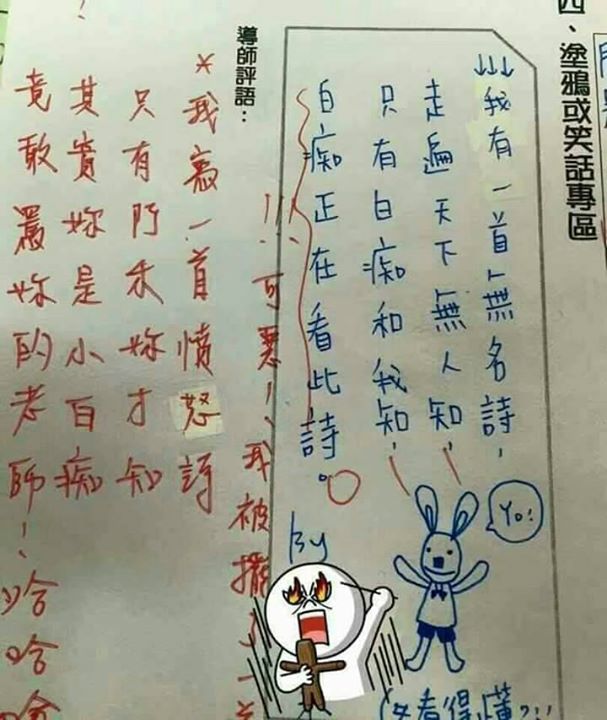 四、塗鴉或笑話專區
↓↓↓我有一首無名詩，
走遍天下無人知，
只有白痴和我知，
白痴正在看此詩。
by
Yo!
看得懂?!!
導師評語：
!!!可惡！我被擺了一
*我寫一首憤怒詩
只有妳才知
其實妳是小白痴
竟敢罵妳的老師！
哈哈哈